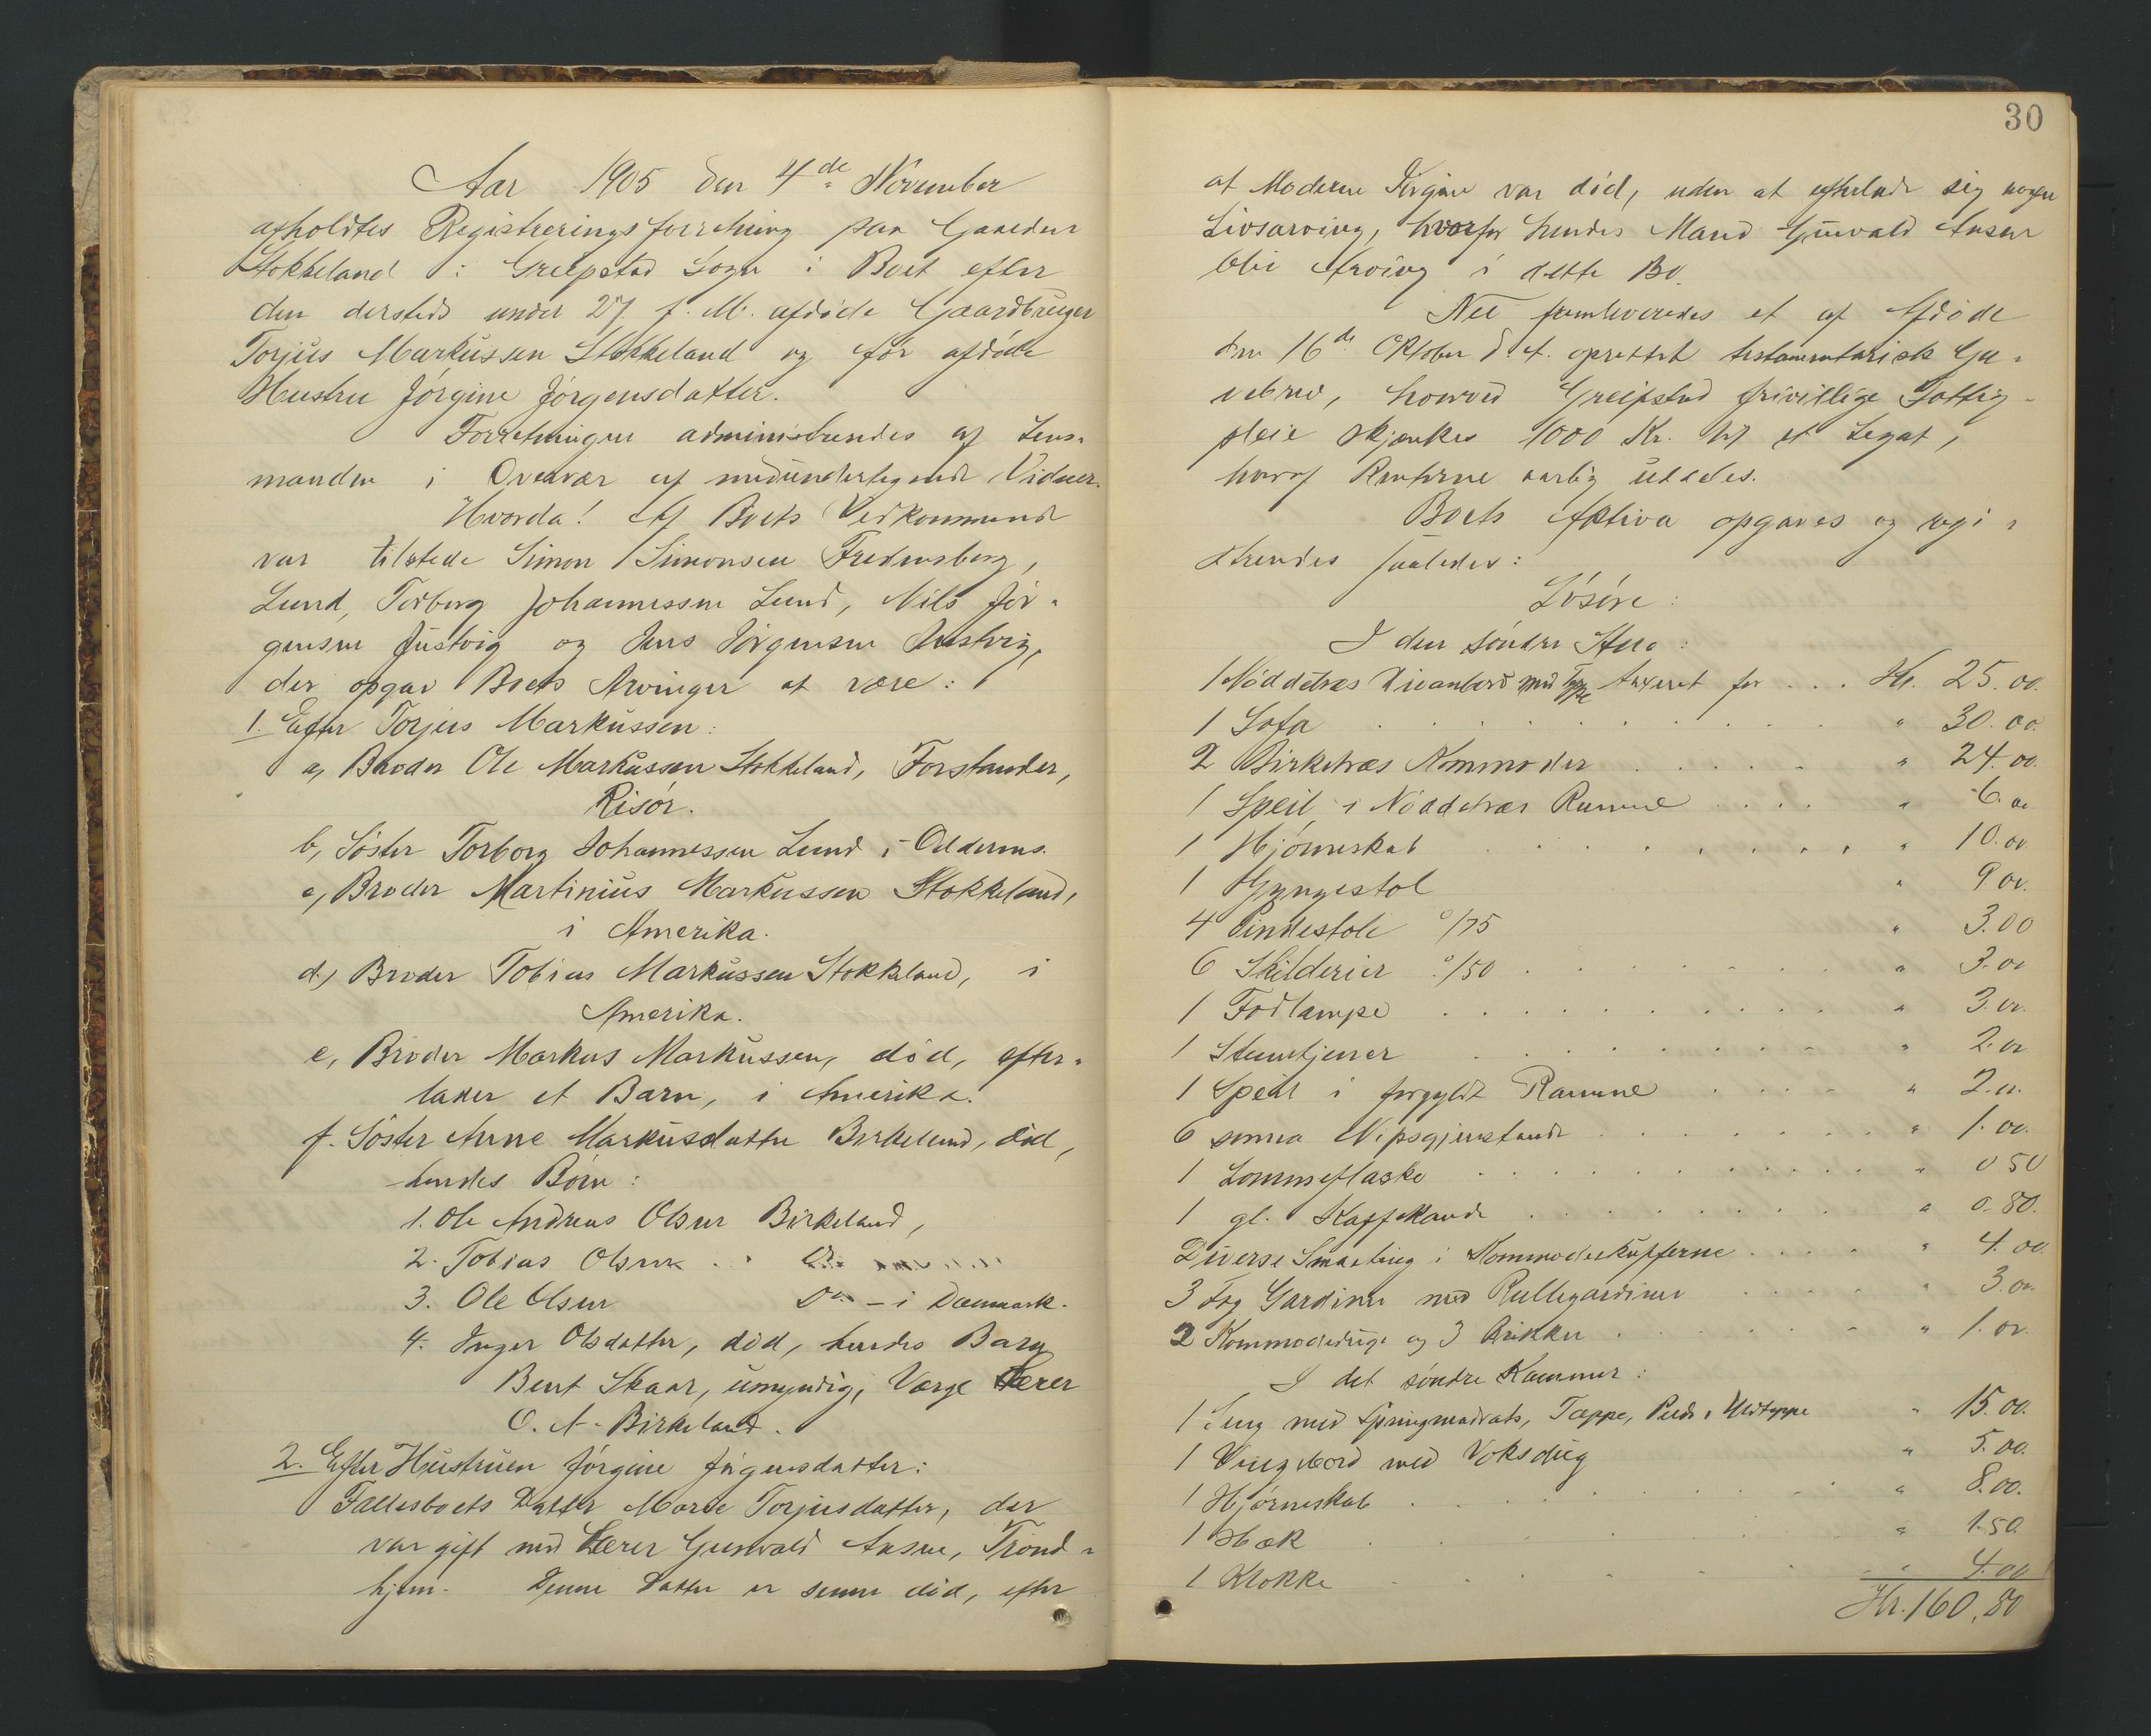 Aar 1905 den 4de November
afholdtes Registreringsforretning paa Gaarden
Stokkeland i Greepstad Sogn i Boet efter
den dersteds under 27. f. M. afdøde Gaardbruger
Torjus Markussen Stokkeland og før afdøde
Hustru Jørgine Jørgensdatter.
Forretningen administreredes af Lens-
manden i Overvær af medundertegnede Vidner.
Hvorda! Af Boets Vedkommende
var tilstede Simon Simonsen Fredensborg,
Lund, Torborg Johannessen Lund, Nils Jør-
gensen Justvig og Jens Jørgensen Justvig,
der opgav Boets Arvinger at være:
1. Efter Torjus Markussen:
a, Broder Ole Markussen Stokkeland, Forstander,
Risør.
b, Søster Torborg Johannessen Lund i Oddernes.
c, Broder Martinius Markussen Stokkeland,
i Amerika.
d, Broder Tobias Markussen Stokkeland, i
Amerika.
e, Broder Markus Markussen, død, efter-
lader et Barn, i Amerika.
f. Søster Anne Markusdatter Birkeland, død,
hendes Børn:
1. Ole Andreas Olsen Birkeland,
2. Tobias Olsen Do.
3. Ole Olsen Do. - i Danmark.
4. Inger Olsdatter, død, hendes Barn
Bent Skaar, umyndig, Værge Lærer
O. A. Birkeland.
2. Efter Hustruen Jørgine Jørgensdatter:
Fællesboets Datter Marie Torjusdatter, der
var gift med Lærer Gunvald Aasen, Trond-
hjem. Denne Datter er senere død, efter
30
at Moderen Jørgine var død, uden at efterlade sig nogen
Livsarving, hvorfor hendes Mand Gunvald Aasen
blir Arving i dette Bo.
Nu fremleveredes et af Afdøde
den 16de Oktober d. A. oprettet testamentarisk Ga-
vebrev, hvorved Greipstad frivillige Fattig-
pleie skjænkes 1000 Kr. til et Legat,
hvoraf Renterne aarlig uddeles.
Boets Aktiva opgaves og regi-
streredes saaledes:
Løsøre:
I den søndre Stue:
1 Nøddetræs Divanbord med Teppe taxeret for . . . Kr. 25.00.
1 Sofa " 30.00.
2 Birketræs Kommoder " 24.00.
1 Speil i Nøddetræs Ramme " 6.00
1 Hjørneskab " 10.00
1 Gyngestol " 9.00.
4 Pindestole a/75 " 3.00
6 Skilderier a/50 " 3.00
1 Fodlampe " 3.00.
1 Stumtjener " 2.00
1 Speil i forgyldt Ramme " 2.00.
6 smaa Nipsgjenstande " 1.00.
1 Lommeflaske " 0 50
1 gl. Kaffekande " 0.80.
Diverse Smaating i Kommodeskufferne " 4.00
3 Fag Gardiner med Rullegardiner " 3.00.
2 Kommodeduge og 3 Brikker " 1.00.
I det søndre Kammer:
1 Seng med Springmadrats, Tæppe, Pude, Uldteppe " 15.00.
1 Vingebord med Voksdug " 5.00.
1 Hjørneskab " 8.00.
1 Hæk " 1.50.
1 Klokke " 4.00
Kr. 160,80